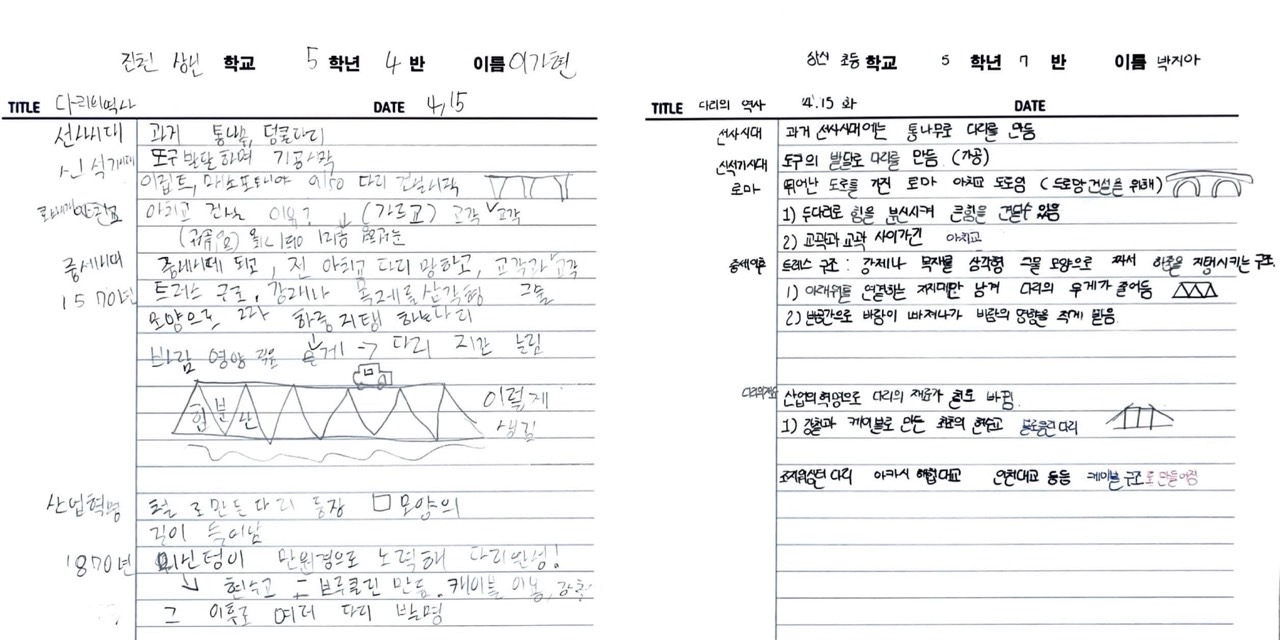 진천 상신 학교 5 학년 4 반 이름 이가현
TITLE 다리의 역사 DATE 4, 15
선사시대 과거 통나무, 덩쿨다리
신석기시대 도구 발달하며 가공시작
이집트, 메소포타미아 다리 건설시작
아치교 건설 이유? (가르교) 교각 교각
중세시대 중세시대 되고, 진 아치교 다리 망하고, 교각과 교각
1570년 트러스 구조, 강재나 목제를 삼각형 그물
모양으로 하중 지탱 하는다리
바람 영양 무게 → 다리 지간 늘림
힘 분산
이렇게
생김
산업혁명 철로만든다리 등장 □모양의
길이 늘어남
1870년 워싱턴이 만원경으로 노력해 다리완성!
↳ 현수교 = 브루클린 만듬. 케이블 이용, 강철
그 이후로 여러 다리 발명
상신 초등 학교 5 학년 7 반 이름 박지아
TITLE 다리의 역사 4.15 화 DATE
선사시대 과거 선사시대에는 통나무로 다리를 만듬
신석기시대 도구의 발달로 다리를 만듬. (가공)
로마 뛰어난 도로를 가진 로마 아치교 도로임 (도로망건설을 위해)
1) 두다리로 힘을 분산시켜 큰힘을 견딜수 있음
2) 교각과 교각 사이가긴 아치교
중세이후 트레스 구조 : 강제나 목재를 삼각형 그물 모양으로 짜서 하중을 지탱시키는 구조.
1) 아래위를 연결하는 지지대만 남겨 다리의 무게가 줄어듬
2) 빈공간으로 바람이 빠져나가 바람의 영향을 적게 받음.
다리의재료 산업의혁명으로 다리의 재료가 철로 바뀜.
1) 강철과 케이블로 만든 최초의 현수교 블로클린 다리
조지워싱턴 다리 아카시 해협대교 인천대교 등등 케이블 구조로 만들어짐